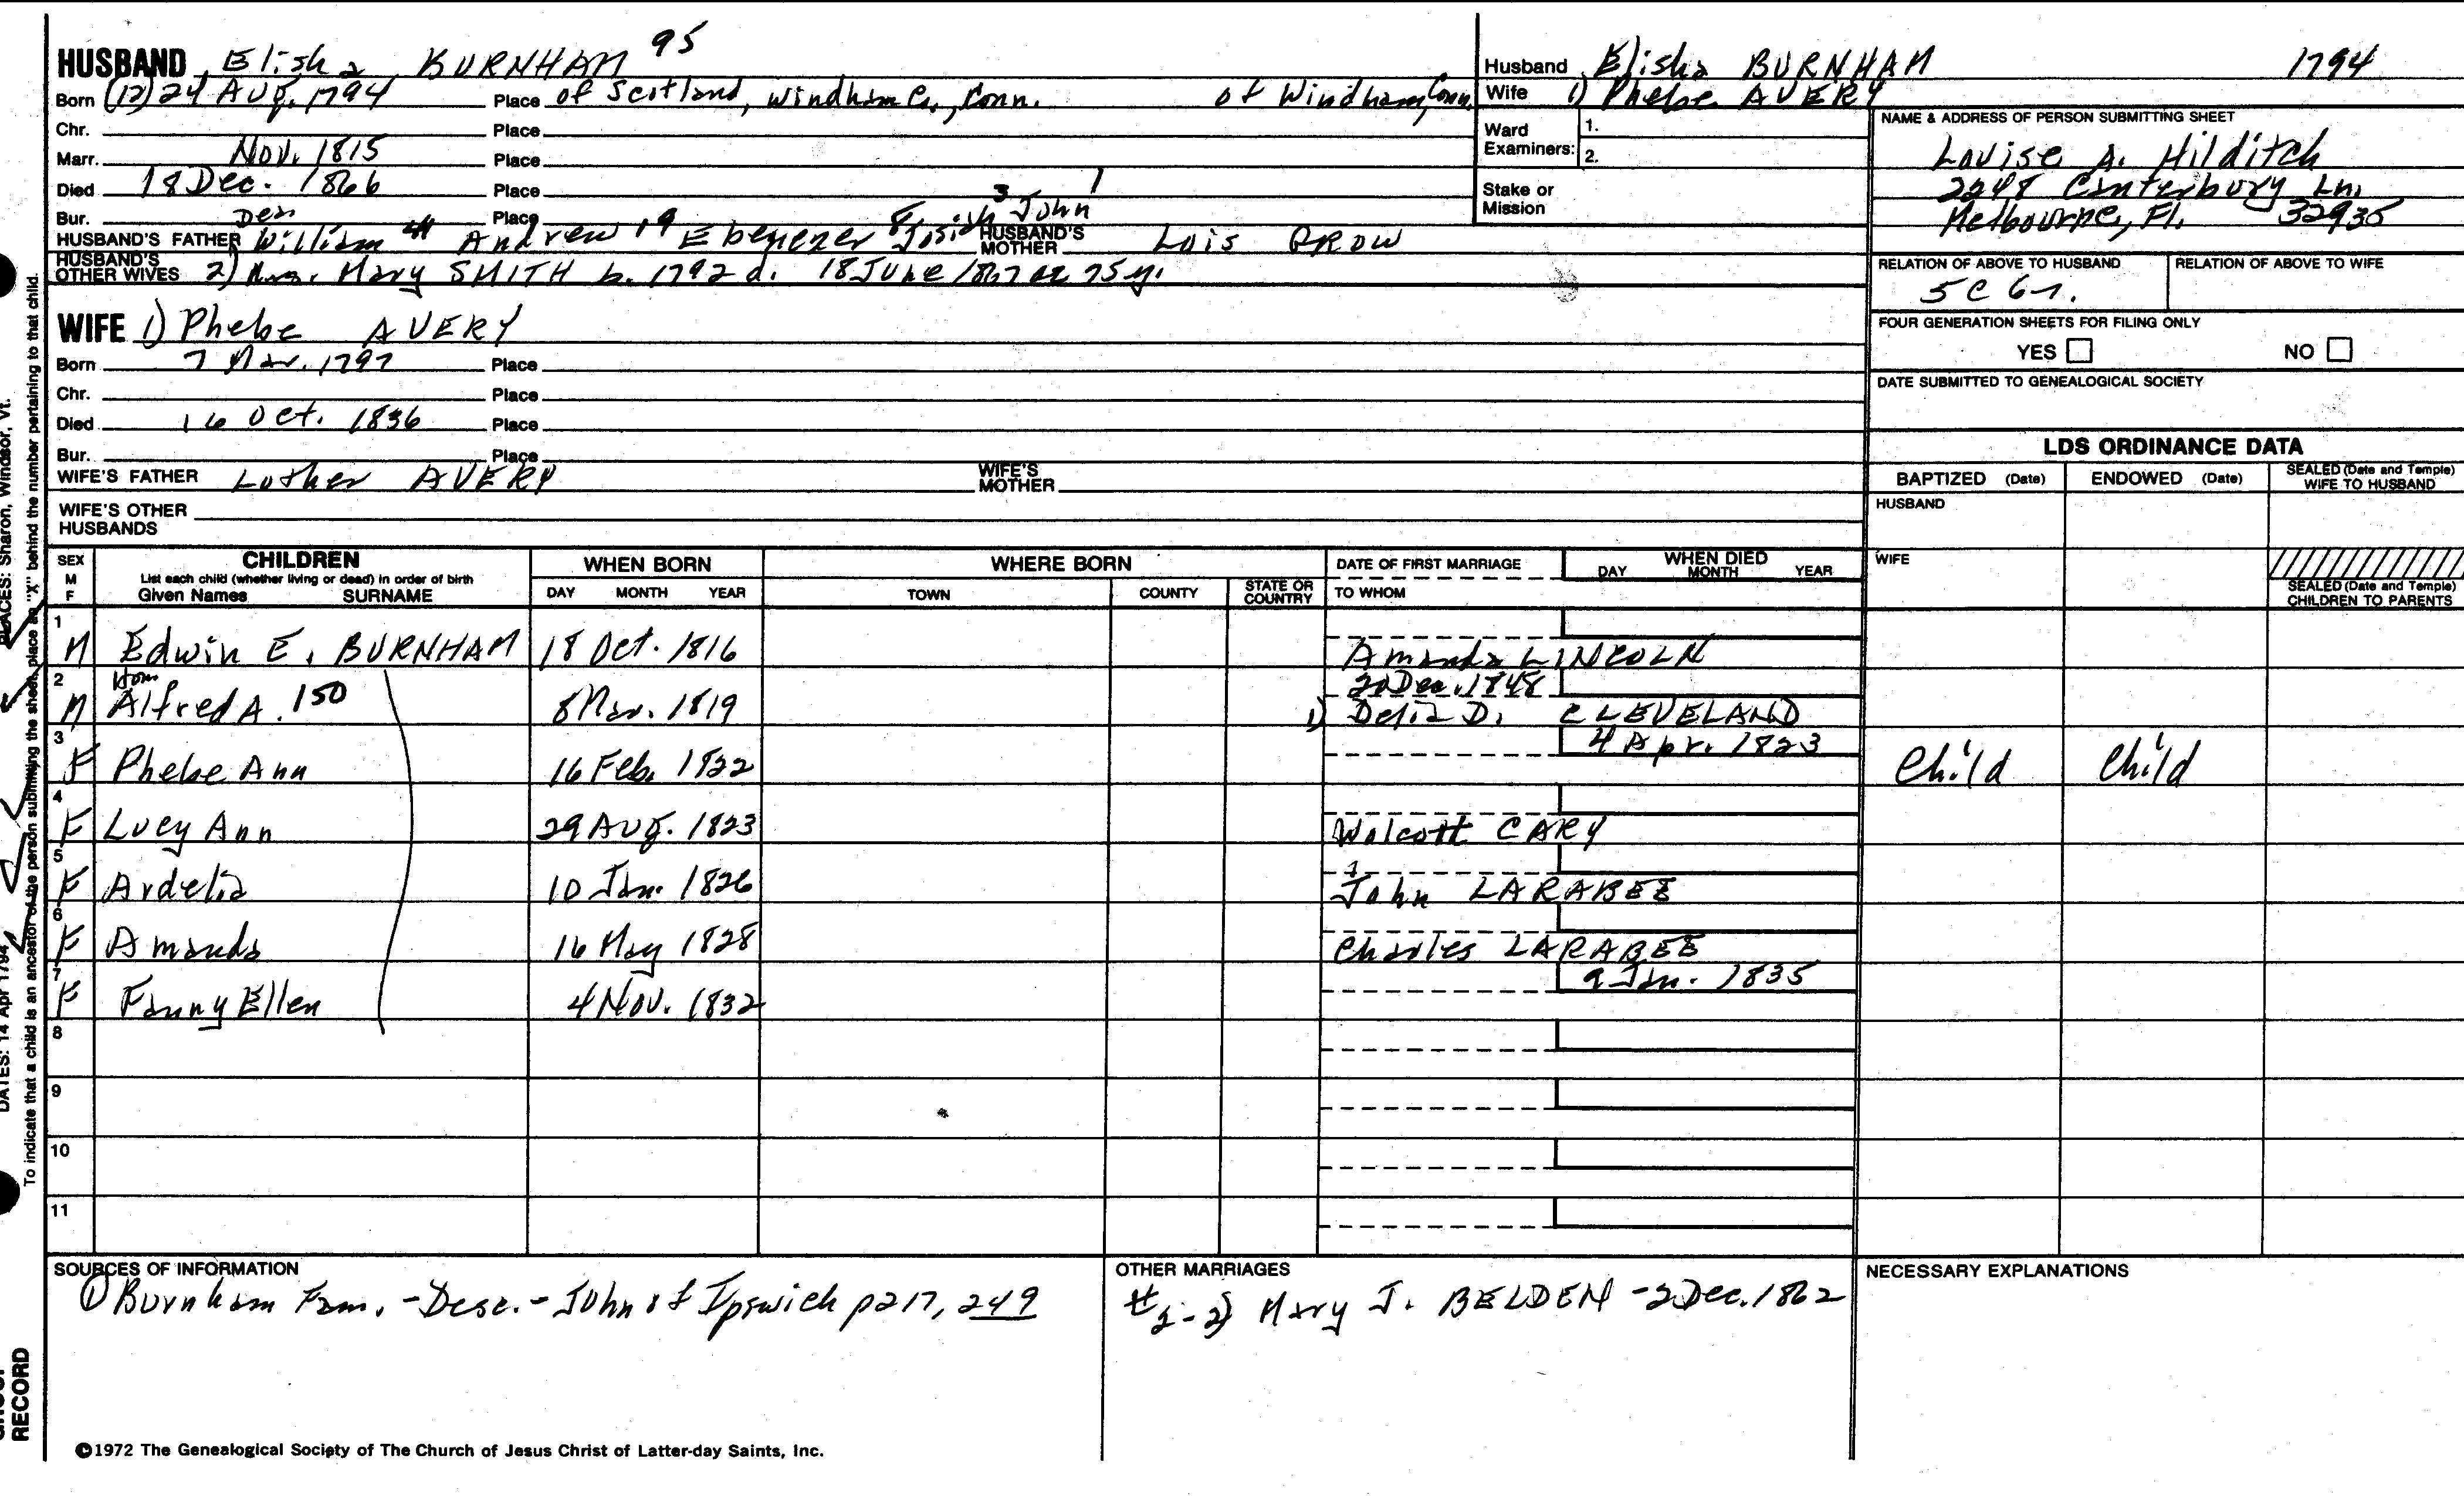 HUSBAND Elisha BURNHAM 95
Born (12) 24 Aug. 1794 Place of Scotland, Windham Co., Conn. of Windham, Conn.
Chr. Place
Marr. Nov. 1815 Place
Died 18 Dec. 1866 Place
Bur. Place
HUSBAND'S FATHER William Andrew 19 Ebenezer 8 Josiah 3 John 1 HUSBAND'S MOTHER Lois
HUSBAND'S OTHER WIVES 2) Mrs. Mary SMITH b. 1792 d. 18 June 1867 ae 75 y.
Husband Elisha BURNHAM 1794
Wife 1) Phebe AVERY
Ward Examiners: 1.
2.
Stake or Mission
NAME & ADDRESS OF PERSON SUBMITTING SHEET
Louise A. Hilditch
2248 Canterbury Ln.
Melbourne, Fl. 32935
RELATION OF ABOVE TO HUSBAND RELATION OF ABOVE TO WIFE
5C
FOUR GENERATION SHEETS FOR FILING ONLY
YES NO
DATE SUBMITTED TO GENEALOGICAL SOCIETY
WIFE 1) Phebe AVERY
Born 7 Mar. 1797 Place
Chr. Place
Died 16 Oct. 1836 Place
Bur. Place
WIFE'S FATHER Luther AVERY WIFE'S MOTHER
WIFE'S OTHER HUSBANDS
LDS ORDINANCE DATA
BAPTIZED (Date) ENDOWED (Date) SEALED (Date and Temple) WIFE TO HUSBAND
HUSBAND
WIFE
SEALED (Date and Temple) CHILDREN TO PARENTS
SEX M F CHILDREN List each child (whether living or dead) in order of birth Given Names SURNAME
WHEN BORN DAY MONTH YEAR
WHERE BORN TOWN COUNTY STATE OR COUNTRY
DATE OF FIRST MARRIAGE TO WHOM
WHEN DIED DAY MONTH YEAR
1 M Edwin E. BURNHAM 18 Oct. 1816 Amanda LINCOLN
2 M Hon Alfred A. 150 8 Mar. 1819 2 Dec. 1848 1) Delia D. CLEVELAND
3 F Phebe Ann 16 Feb. 1822 4 Apr. 1823 Child Child
4 F Lucy Ann 29 Aug. 1823 Walcott CARY
5 F Ardelia 10 Jan. 1826 John LARABEE
6 F Amanda 16 May 1828 Charles LARABEE
7 F Fanny Ellen 4 Nov. 1832 9 Jan. 1835
8
9
10
11
SOURCES OF INFORMATION
① Burnham Fam. - Desc. - John of Ipswich p 217, 249
OTHER MARRIAGES
#2-2) Mary J. BELDEN - 2 Dec. 1862
NECESSARY EXPLANATIONS
©1972 The Genealogical Society of The Church of Jesus Christ of Latter-day Saints, Inc.
RECORD
DATES: 14 Apr 1794
PLACES: Sharon, Windsor, Vt.
To indicate that a child is an ancestor of the person submitting the sheet, place an "X" behind the number pertaining to that child.